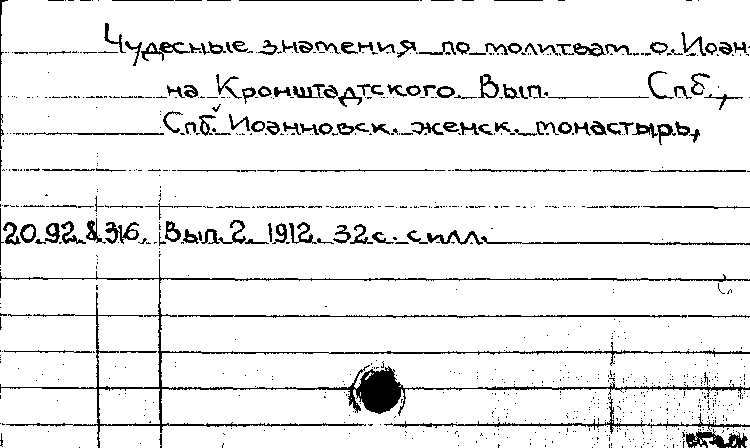 Чудесные знамения по молитвам о. Иоан-
на Кронштадтского. Вып. Спб.,
Спб. Иоанновск. женск. монастырь,
20.92.8.316. Вып. 2. 1912. 32 с. с илл.